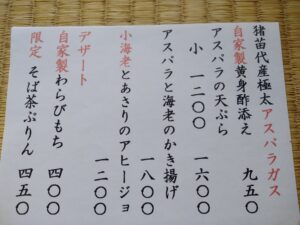 猪苗代産極太アスパラガス
自家製黄身酢添え 九五〇
アスパラの天ぷら
小 一二〇〇 一六〇〇
アスパラと海老のかき揚げ
一八〇〇
小海老とあさりのアヒージョ
一二〇〇
デザート
自家製わらびもち 四〇〇
限定 そば茶ぷりん 四五〇